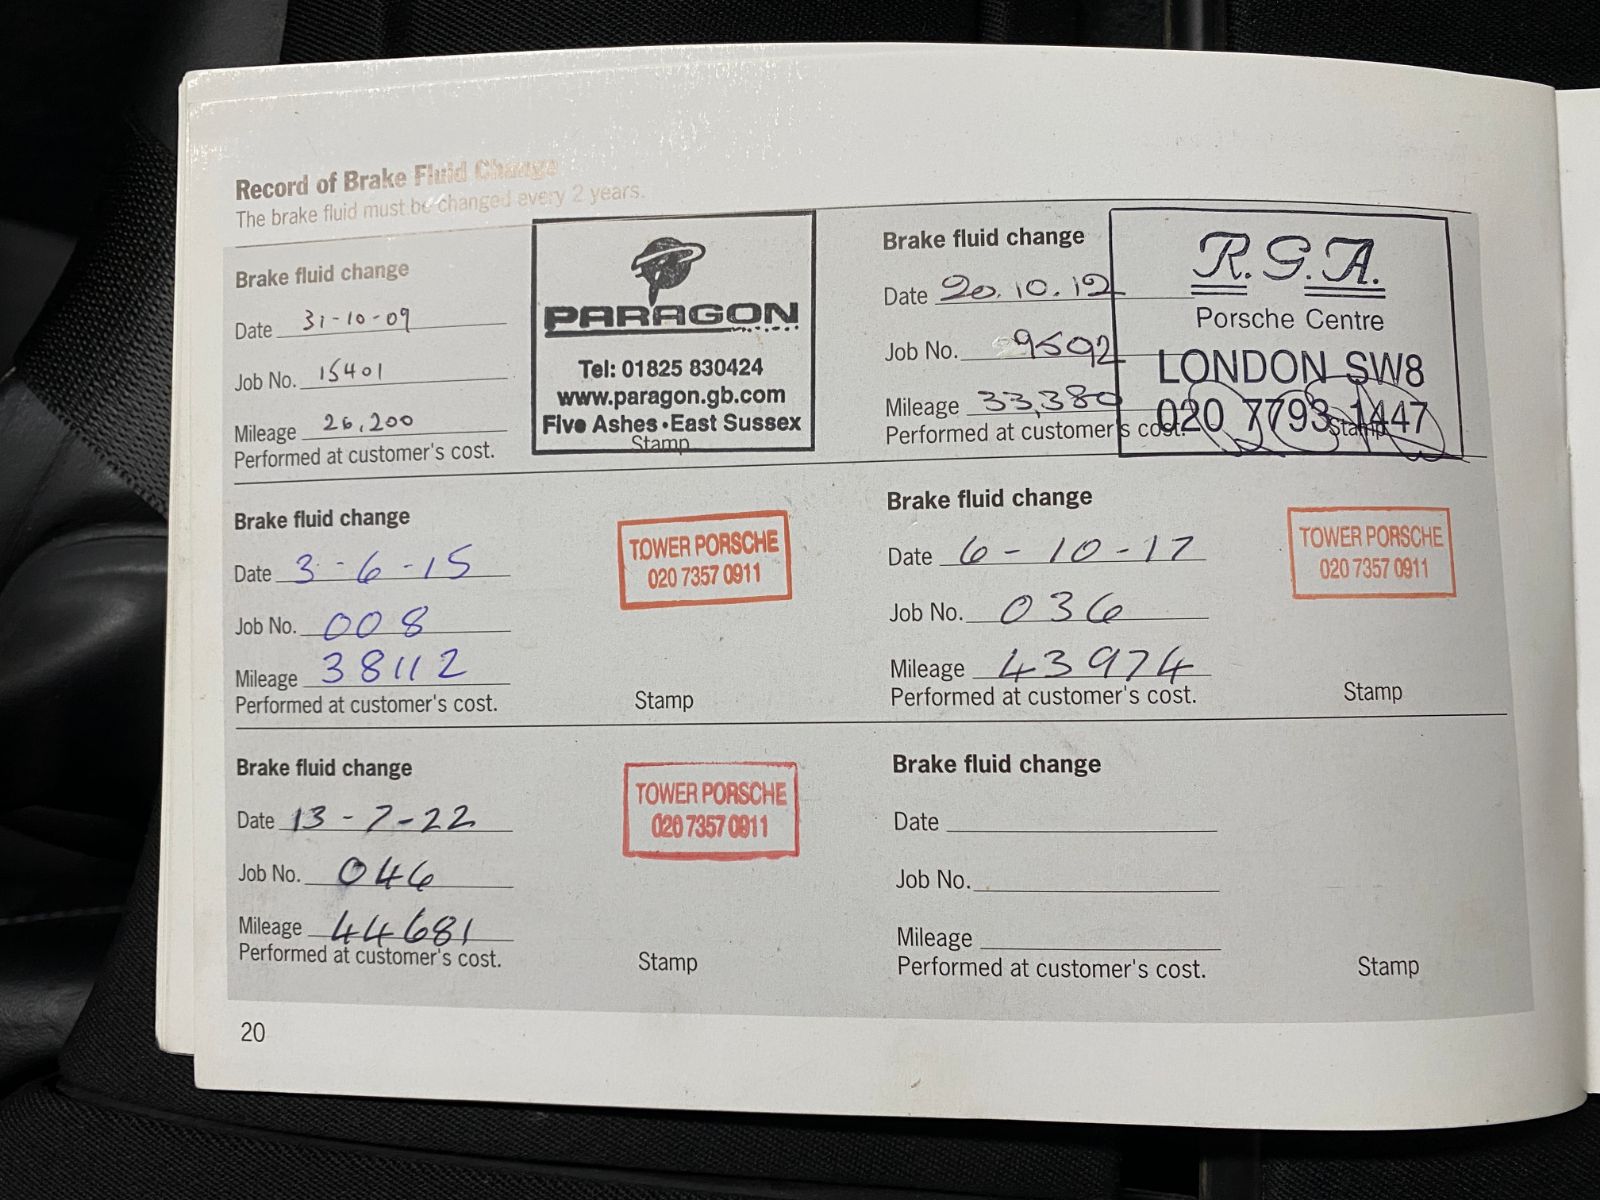 Record of Brake Fluid Change
The brake fluid must be changed every 2 years.
Brake fluid change
Date 31-10-09
Job No. 15401
Mileage 26,200
Performed at customer's cost.
PARAGON
Tel: 01825 830424
www.paragon.gb.com
Five Ashes • East Sussex
Stamp
Brake fluid change
Date 20.10.12
Job No. 9592
Mileage 33,380
Performed at customer's cost.
R.G.A.
Porsche Centre
LONDON SW8
020 7793 1447
Stamp
Brake fluid change
Date 3-6-15
Job No. 008
Mileage 38112
Performed at customer's cost.
TOWER PORSCHE
020 7357 0911
Stamp
Brake fluid change
Date 6-10-17
Job No. 036
Mileage 43974
Performed at customer's cost.
TOWER PORSCHE
020 7357 0911
Stamp
Brake fluid change
Date 13-7-22
Job No. 046
Mileage 44681
Performed at customer's cost.
TOWER PORSCHE
020 7357 0911
Stamp
Brake fluid change
Date
Job No.
Mileage
Performed at customer's cost.
Stamp
20